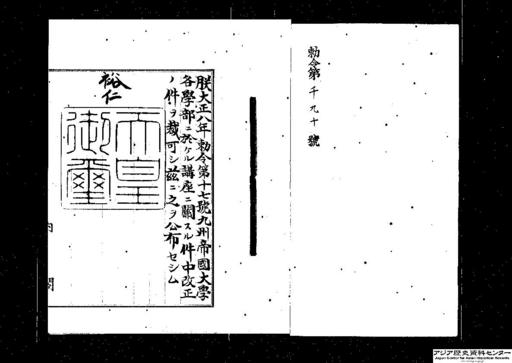 勅令第千九十號
朕大正八年勅令第十七號九州帝國大學
各學部ニ於ケル講座ニ關スル件中改正
ノ件ヲ裁可シ茲ニ之ヲ公布セシム
裕仁
天皇
御璽
内閣
アジア歴史資料センター
Japan Center for Asian Historical Records